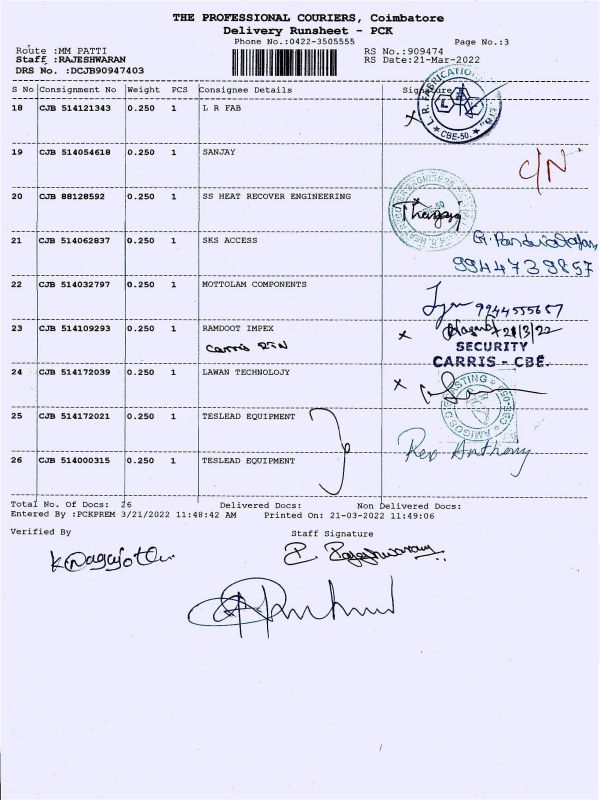 THE PROFESSIONAL COURIERS, Coimbatore
Delivery Runsheet - PCK
Phone No.:0422-3505555 Page No.:3
Route :MM PATTI RS No.:909474
Staff :RAJESHWARAN RS Date:21-Mar-2022
DRS No. :DCJB90947403
S No Consignment No Weight PCS Consignee Details Signature
18 CJB 514121343 0.250 1 L R FAB
L. R. FABRICATION
CBE-50.
19 CJB 514054618 0.250 1 SANJAY
C/N
20 CJB 88128592 0.250 1 SS HEAT RECOVER ENGINEERING
21 CJB 514062837 0.250 1 SKS ACCESS
9944739857
22 CJB 514032797 0.250 1 MOTTOLAM COMPONENTS
9944555657
23 CJB 514109293 0.250 1 RAMDOOT IMPEX
21/3/22
SECURITY
CARRIS - CBE.
24 CJB 514172039 0.250 1 LAWAN TECHNOLOJY
25 CJB 514172021 0.250 1 TESLEAD EQUIPMENT
Rev Anthony
26 CJB 514000315 0.250 1 TESLEAD EQUIPMENT
Total No. Of Docs: 26 Delivered Docs: Non Delivered Docs:
Entered By :PCKPREM 3/21/2022 11:48:42 AM Printed On: 21-03-2022 11:49:06
Verified By Staff Signature